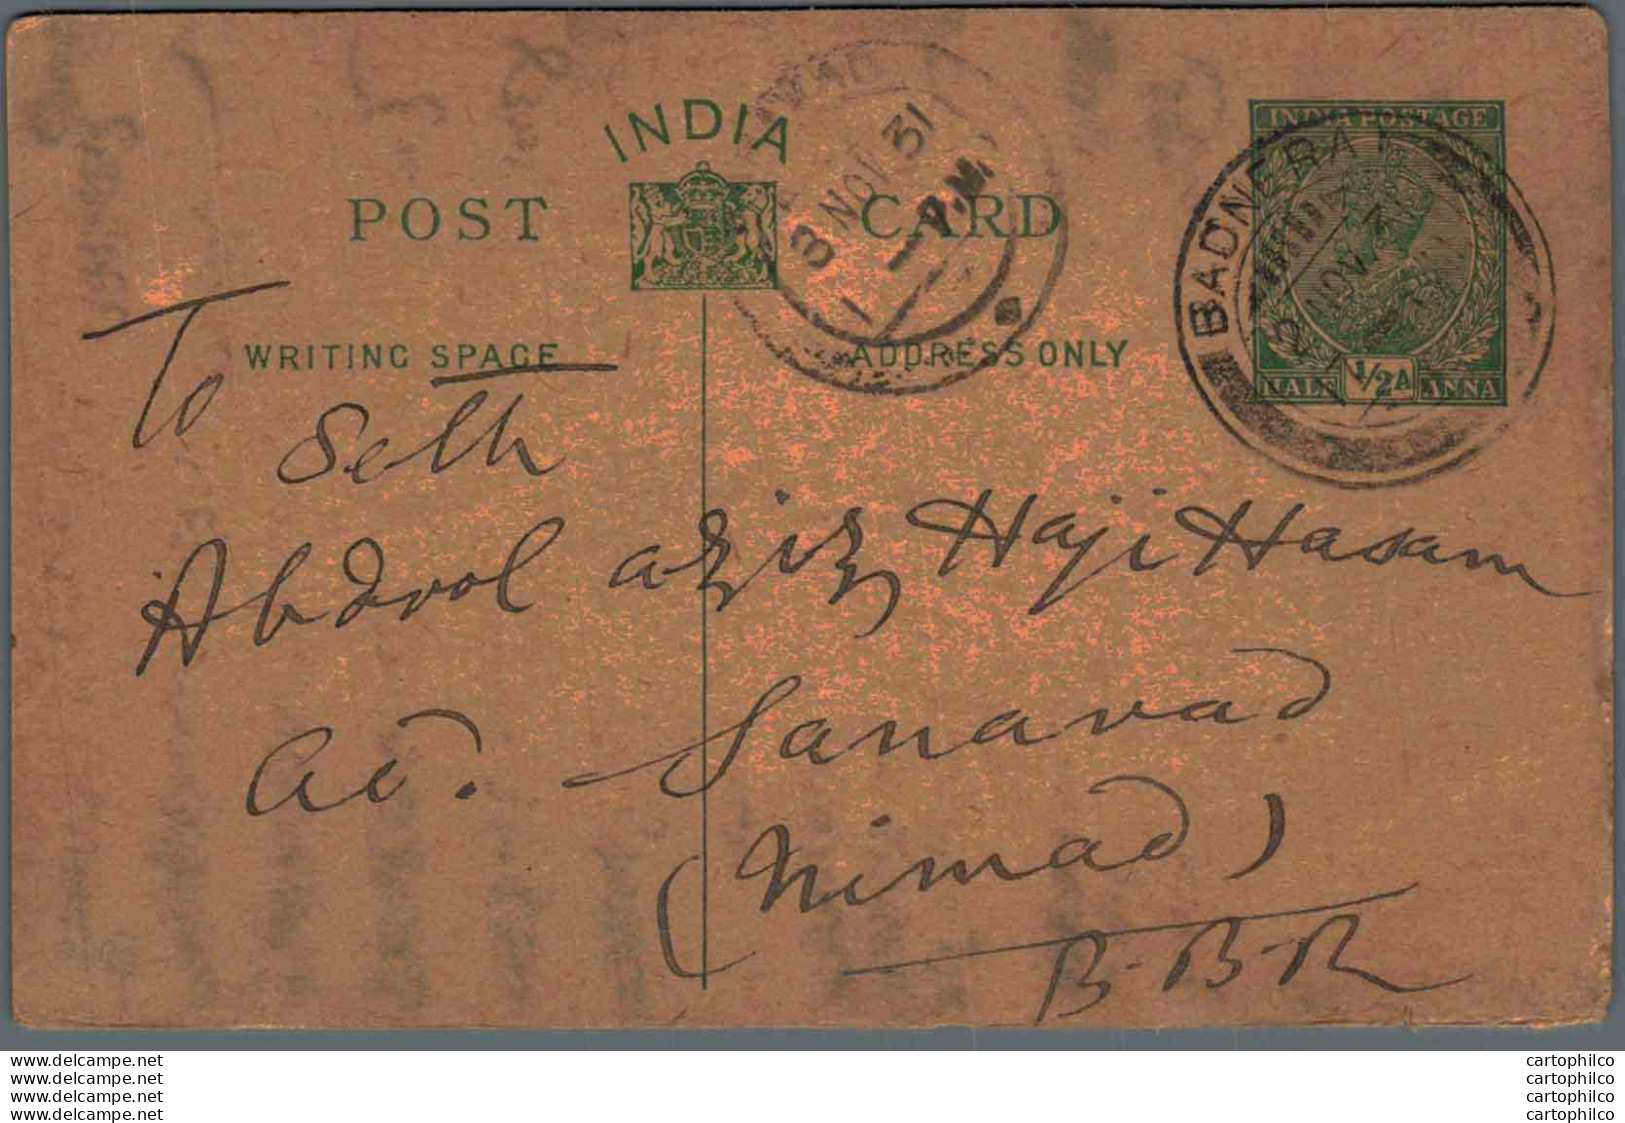 INDIA
POST CARD
WRITING SPACE
ADDRESS ONLY
INDIA POSTAGE
HALF 1/2A ANNA
BADNERA
3 NOV 31
To
Seth
Abdool aziz Haji Hasam
At. Sanavad
(Nimad)
B-B-R
www.delcampe.net cartophilco
www.delcampe.net cartophilco
www.delcampe.net cartophilco
www.delcampe.net cartophilco